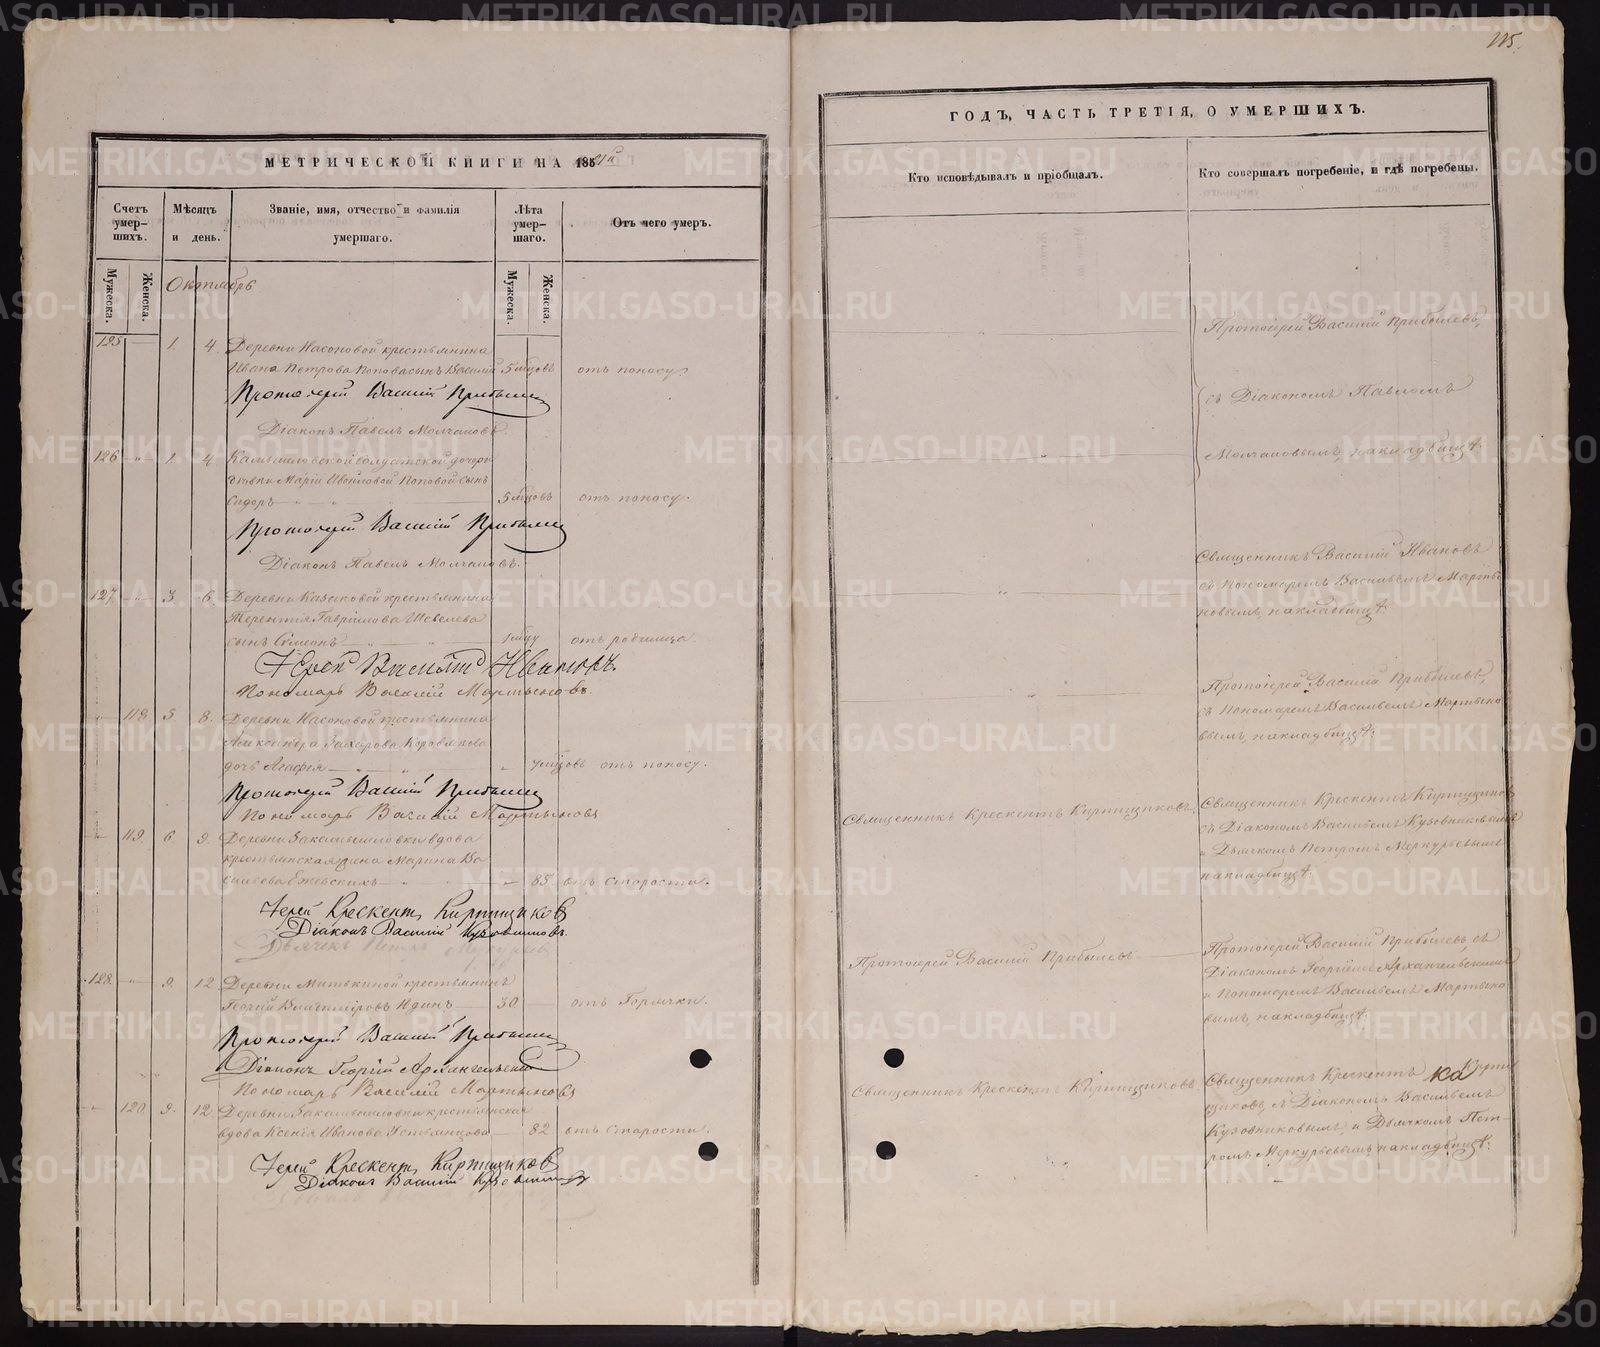 115.
МЕТРИЧЕСКОЙ КНИГИ НА 185
ГОДЪ, ЧАСТЬ ТРЕТІЯ, О УМЕРШИХЪ.
Счетъ умер-
шихъ.
Мѣсяцъ
и день.
Званіе, имя, отчество и фамилія
умершаго.
Лѣта
умер-
шаго.
Отъ чего умеръ.
Кто исповѣдывалъ и пріобщалъ.
Кто совершалъ погребеніе, и гдѣ погребены.
Мужеска.
Женска.
Мужеска.
Женска.
Октябрь
125 1. 4. Деревни Насоновой крестьянина
Ивана Петрова Попова сынъ Василій 5 мѣцовъ отъ поносу.
Протоіерей Василій Прибылевъ
Діаконъ Павелъ Молчановъ.
Протоіерей Василій Прибылевъ,
съ Діакономъ Павломъ
Молчановымъ, на кладбищѣ.
126 " 1. 4 Камышловской солдатской дочери
Маріи Поповой сынъ
Сидоръ 5 мѣцовъ отъ поносу.
Протоіерей Василій Прибылевъ
Діаконъ Павелъ Молчановъ.
127 3. 6. Деревни Казаковой крестьянина
Терентія Гавріилова Шевелева
сынъ Сѵмеонъ 1 мѣцу отъ родимца.
Іерей Василій Ивановъ.
Пономарь Василій Мартыновъ.
Священникъ Василій Ивановъ
съ пономаремъ Васильемъ Марты-
новымъ, на кладбищѣ.
118 5. 8. Деревни Насоновой крестьянина
Александра Захарова Коровякова
дочь Агафія 7 мѣцовъ отъ поносу.
Протоіерей Василій Прибылевъ
Пономарь Василій Мартыновъ
Протоіерей Василій Прибылевъ,
съ Пономаремъ Васильемъ Мартыно-
вымъ, на кладбищѣ.
119 6. 9. Деревни Закамышловки вдова
крестьянская жена Марина Ва-
сильева Ежевскихъ 85 отъ старости.
Іерей Крескентъ Кирпищиковъ
Діаконъ Василій Кузовниковъ.
Дьячекъ Петръ Меркурьевъ
Священникъ Крескентъ Кирпищиковъ.
Священникъ Крескентъ Кирпищиковъ
съ Діакономъ Васильемъ Кузовниковымъ
и Дьячкомъ Петромъ Меркурьевымъ
на кладбищѣ.
128 9. 12 Деревни Митькиной крестьянинъ
Георгій Владиміровъ Юдинъ 30 отъ Горячки.
Протоіерей Василій Прибылевъ
Діаконъ Георгій Архангельскій
Пономарь Василій Мартыновъ
Протоіерей Василій Прибылевъ
Протоіерей Василій Прибылевъ, съ
Діакономъ Георгіемъ Архангельскимъ
и Пономаремъ Васильемъ Мартыно-
вымъ, на кладбищѣ.
120 9. 12. Деревни Закамышловки крестьянская
вдова Ксенія Иванова Устьянцова 82 отъ старости.
Іерей Крескентъ Кирпищиковъ
Діаконъ Василій Кузовниковъ
Священникъ Крескентъ Кирпищиковъ
Священникъ Крескентъ Кирпи-
щиковъ, съ Діакономъ Васильемъ
Кузовниковымъ, и Дьячкомъ Пет-
ромъ Меркурьевымъ на кладбищѣ.
METRIKI.GASO-URAL.RU